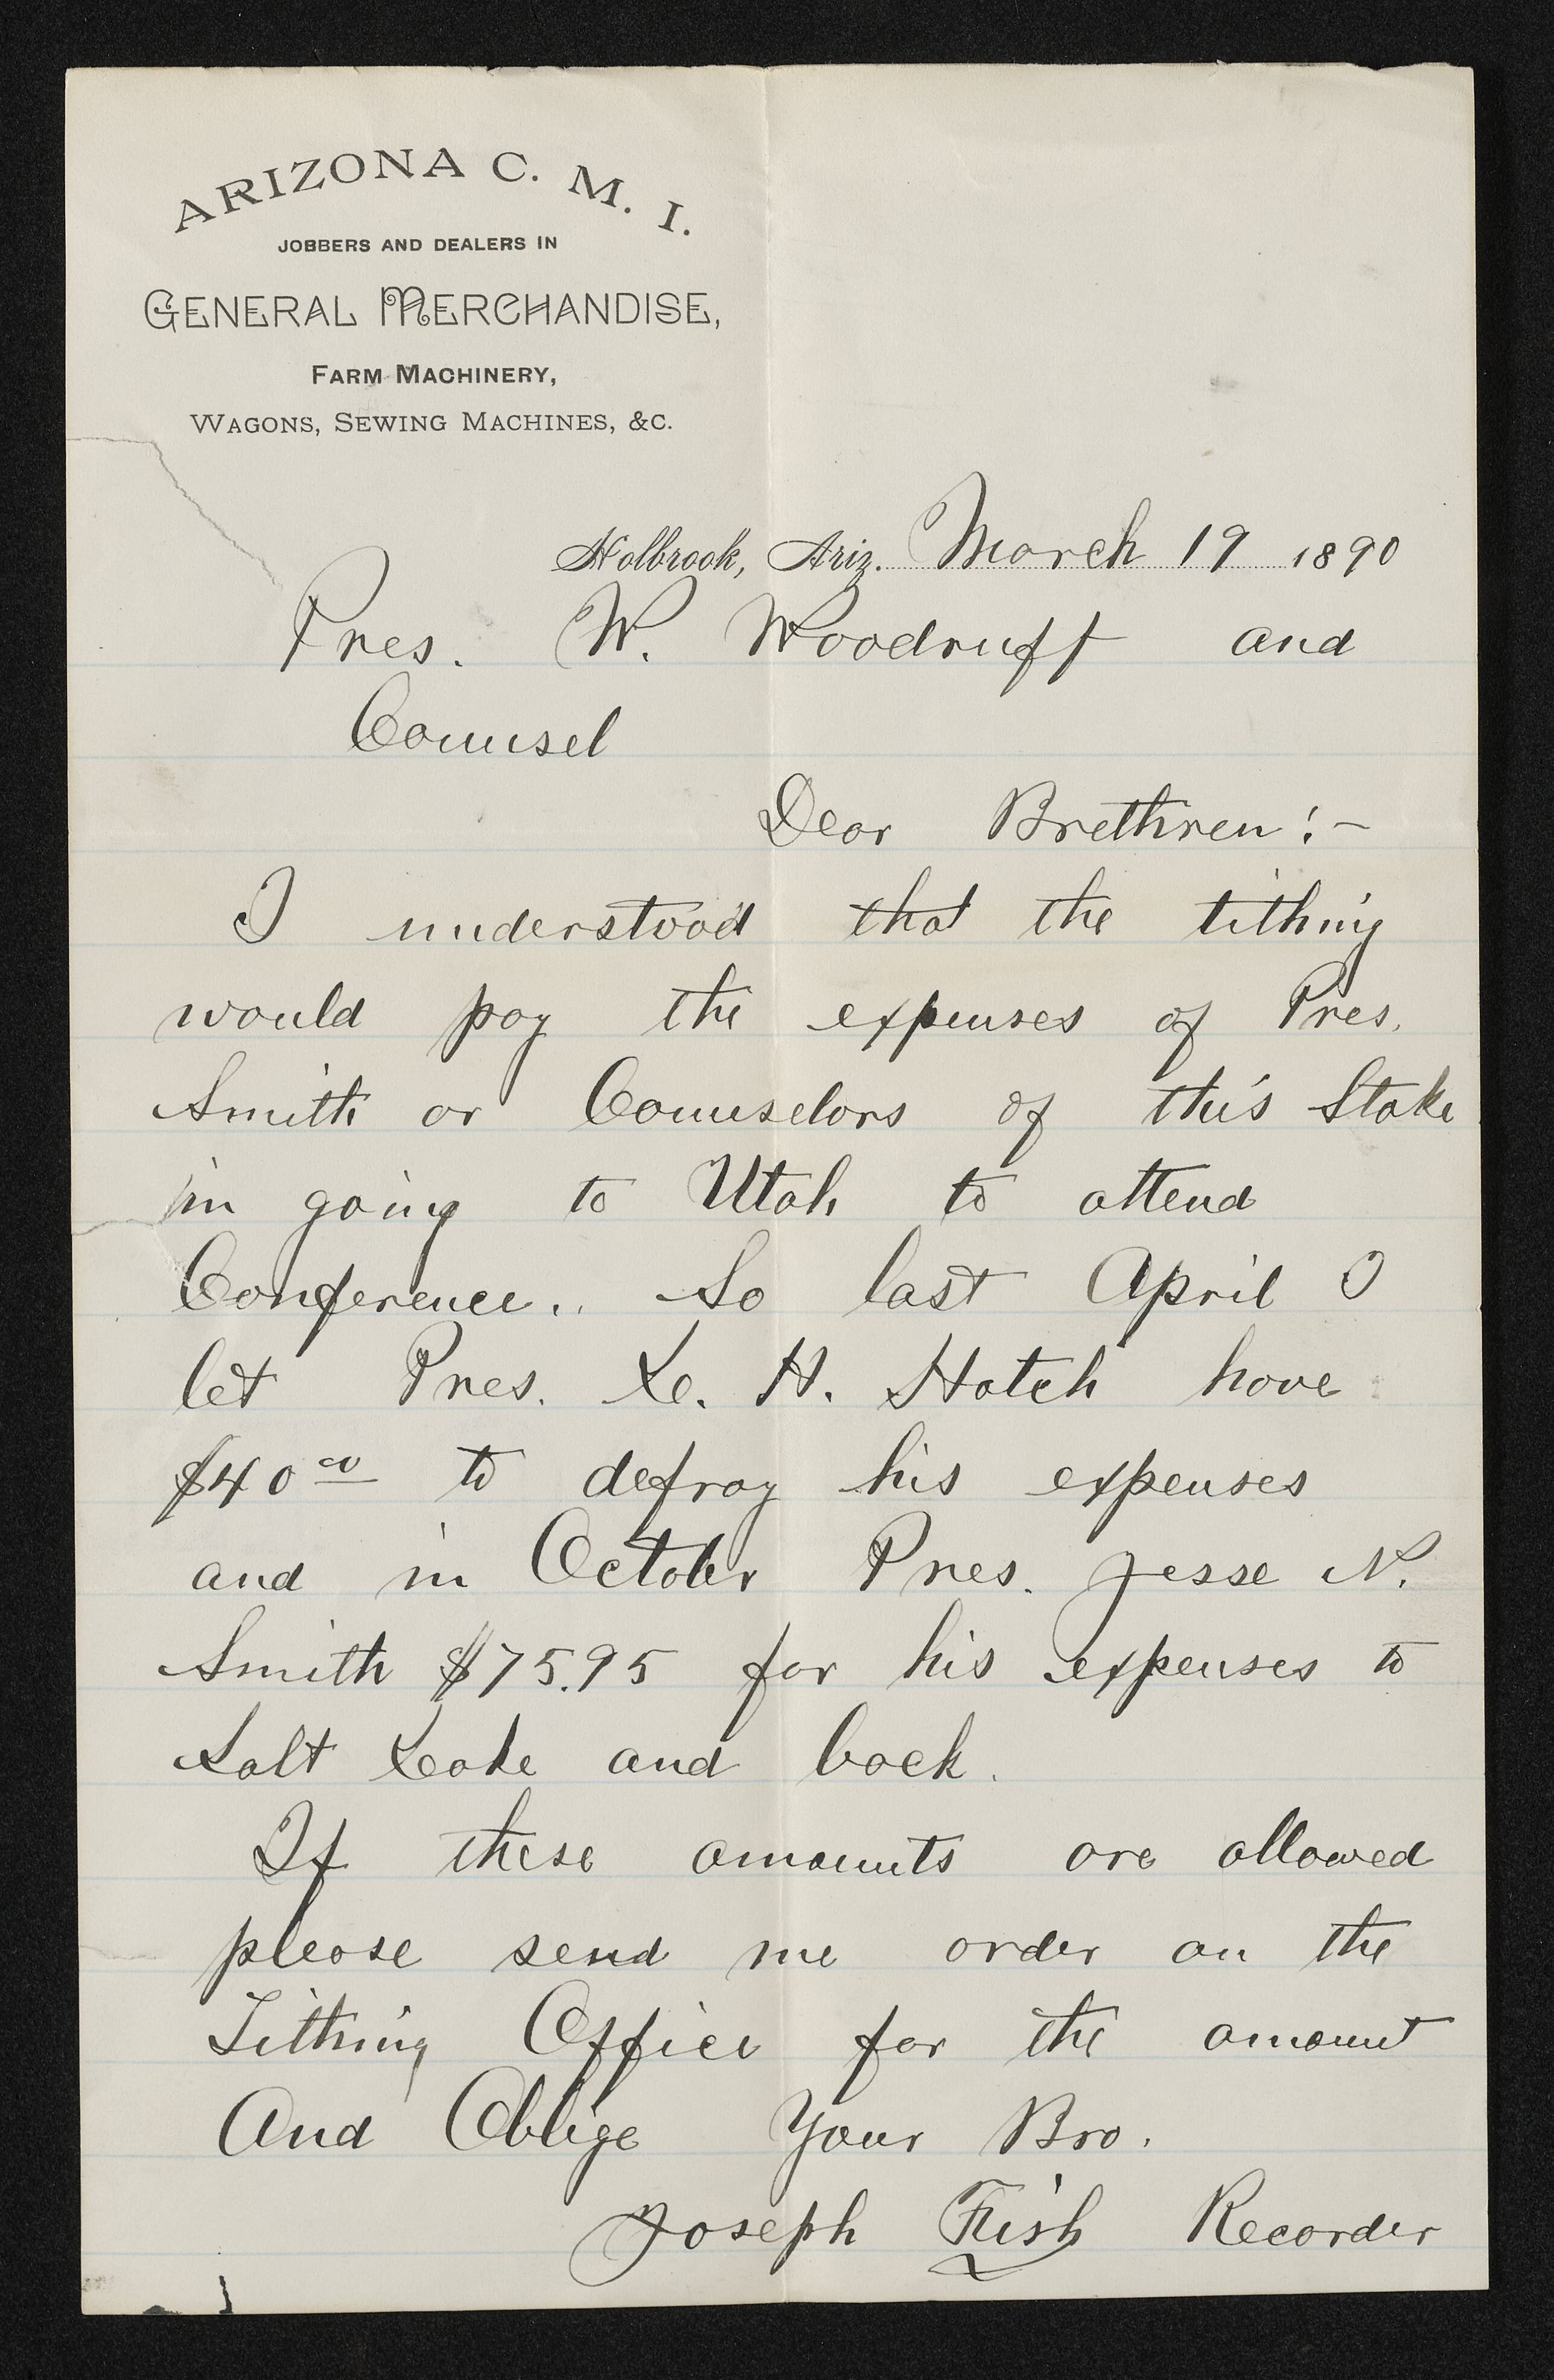 ARIZONA C. M. I.
JOBBERS AND DEALERS IN
GENERAL MERCHANDISE,
FARM MACHINERY,
WAGONS, SEWING MACHINES, &C.
Holbrook, Ariz. March 19 1890
Pres. W. Woodruff and
Counsel
Dear Brethren:-
I understood that the tithing
would pay the expenses of Pres.
Smith or Counselors of this Stake
in going to Utah to attend
Conference.. So last April I
let Pres. L. H. Hatch have
$40 00 to defray his expenses
and in October Pres. Jesse N.
Smith $75.95 for his expenses to
Salt Lake and back.
If these amounts are allowed
please send me order on the
Tithing Office for the amount
And Oblige Your Bro.
Joseph Fish Recorder